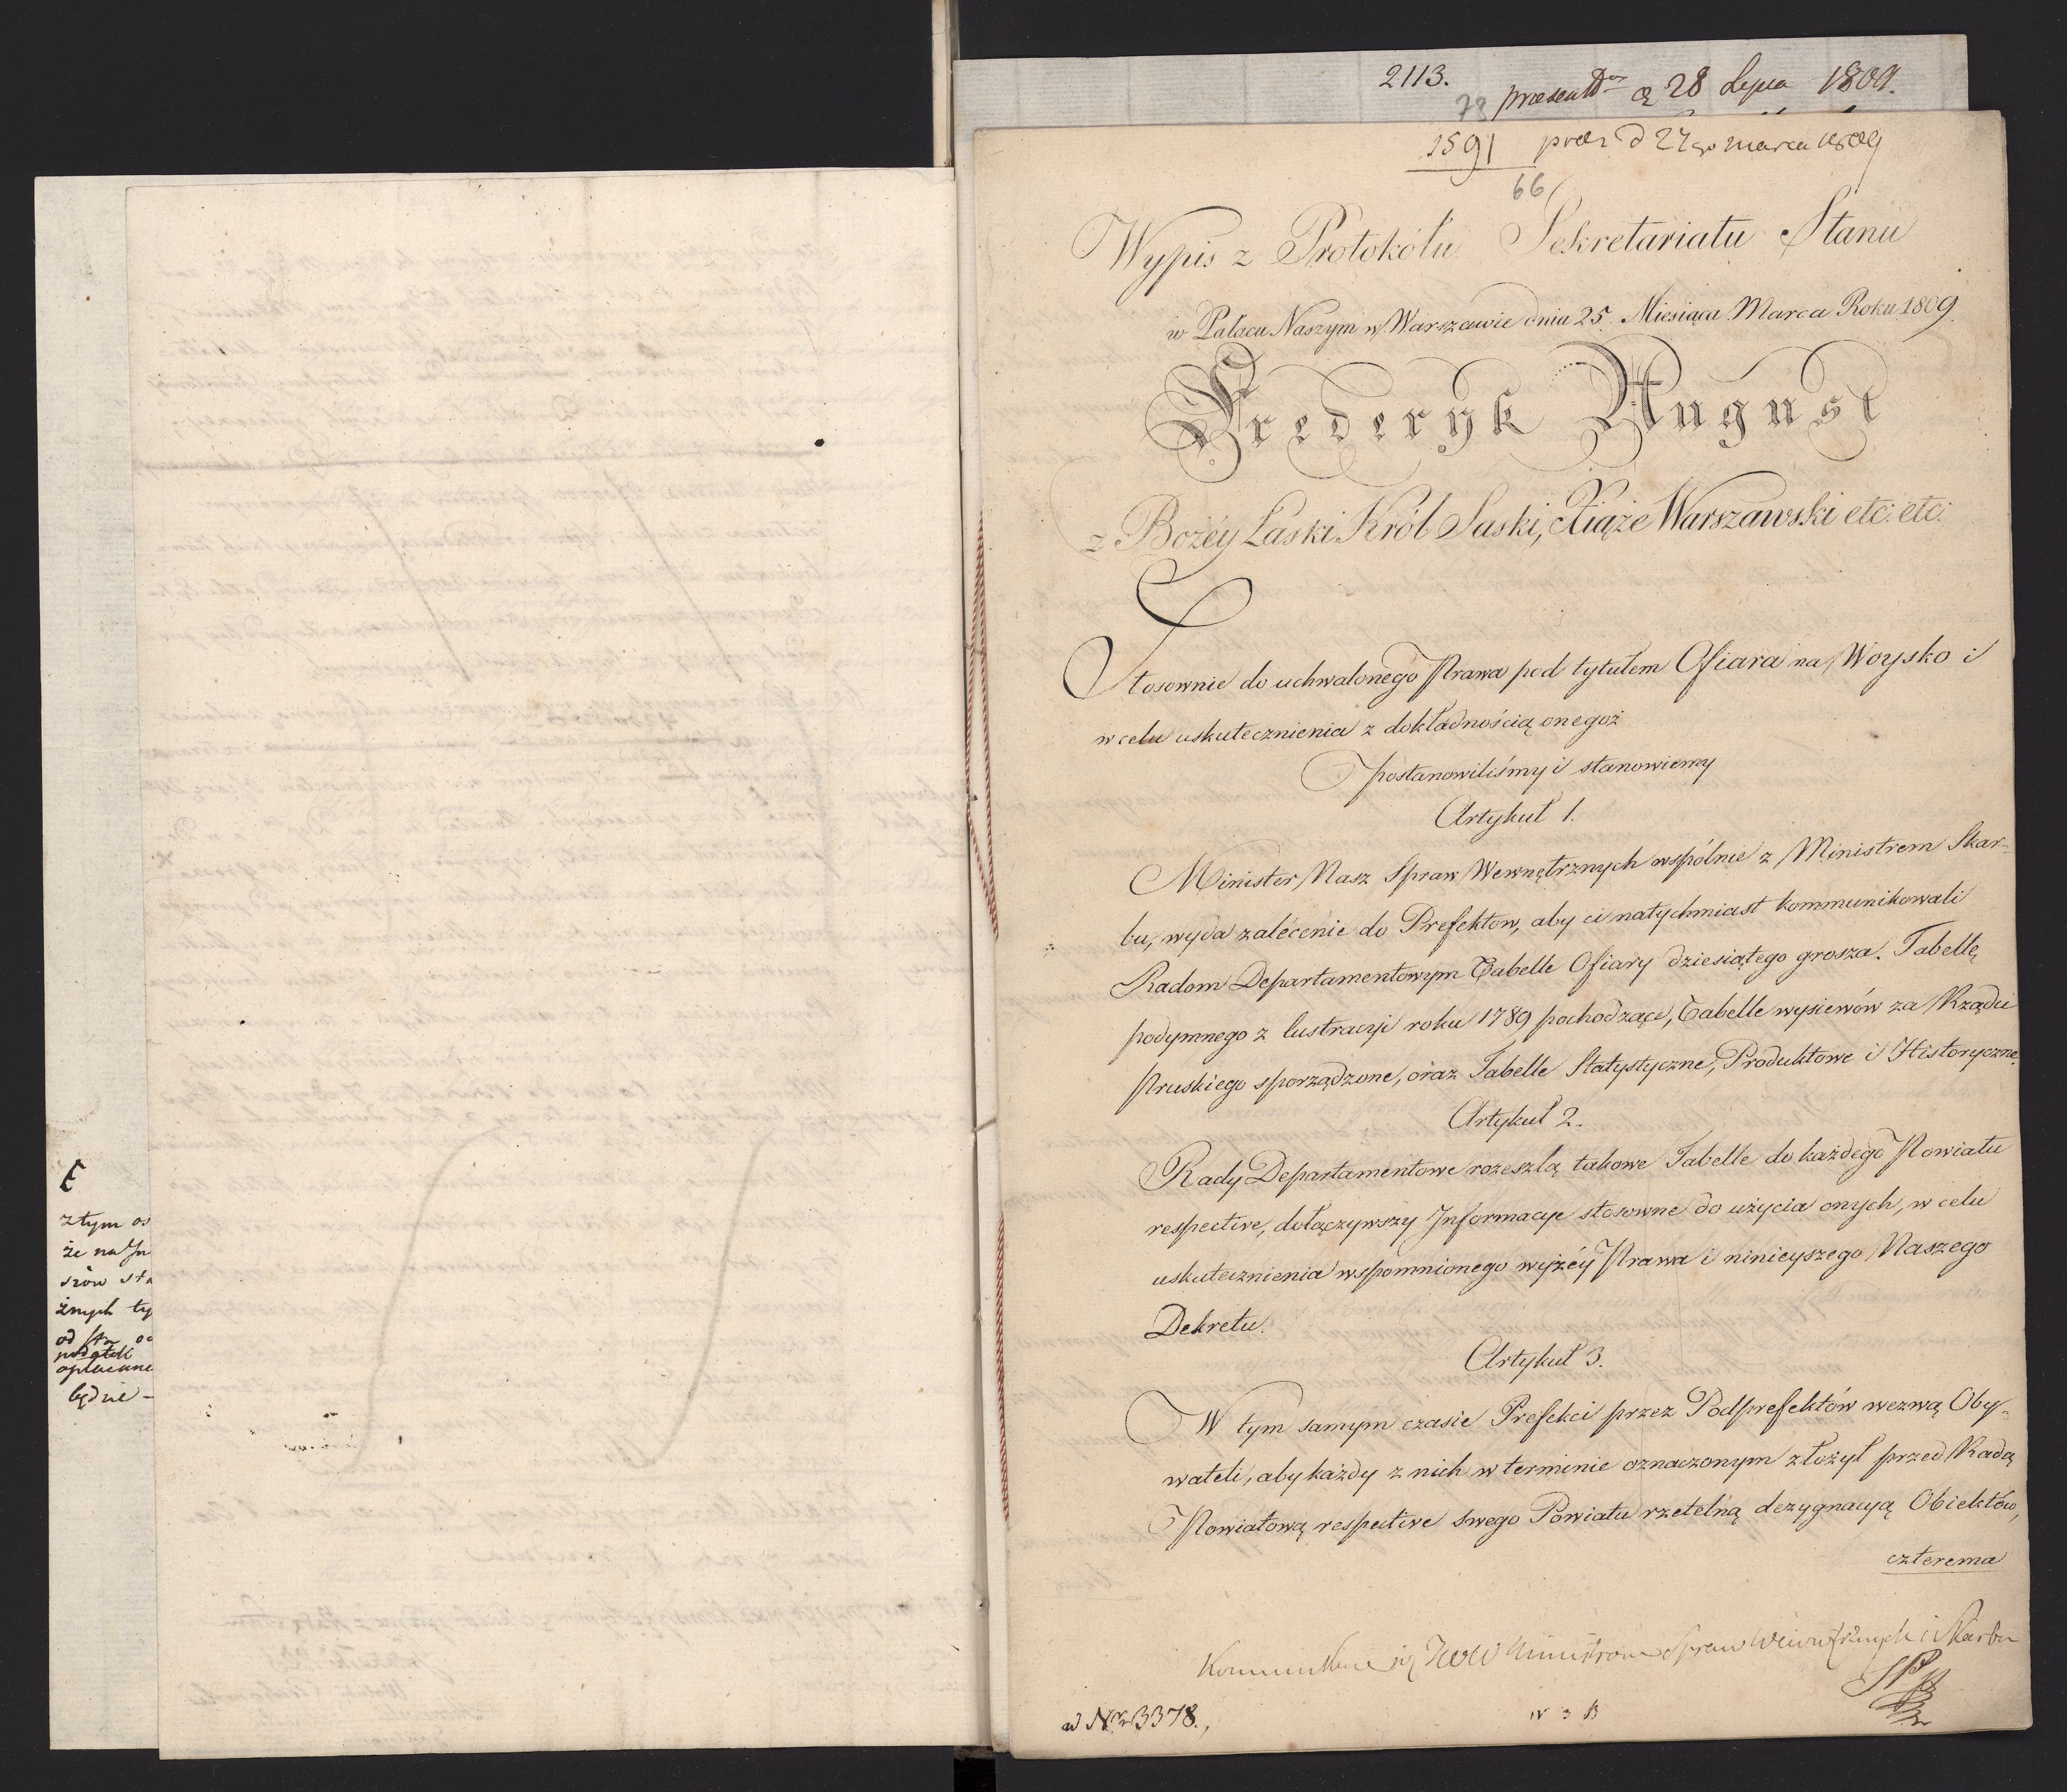 2113.
78 praesent 28 Lipca 1809.
1591 praes d 27go marca 1809
66
Wypis z Protokółu Sekretariatu Stanu
w Pałacu Naszym w Warszawie dnia 25. Miesiąca Marca Roku 1809.
Frederyk August
z Bożéy Łaski Król Saski, Xiąże Warszawski etc: etc:
Stosownie do uchwalonego Prawa pod tytułem Ofiara na Woysko i
w celu uskutecznienia z dokładnością onegoż
postanowiliśmy i stanowiemy
Artykuł 1.
Minister Nasz Spraw Wewnętrznych wspólnie z Ministrem Skar-
bu, wyda zalécenie do Prefektow, aby ci natychmiast kommunikowali
Radom Departamentowym Tabelle Ofiary dziesiątego grosza. Tabellę
podymnego z lustracyi roku 1789 pochodzące, Tabelle wysiewów za Rządu
Pruskiego sporządzone, oraz Tabelle Statystyczne, Produktowe i Historyczne.
Artykuł 2.
Rady Departamentowe rozeszlą takowe Tabelle do każdego Powiatu
respective, dołączywszy Informacye stosowne do użycia onych, w celu
uskutecznienia wspomnionego wyżéy Prawa i ninieyszego Naszego
Dekretu.
Artykuł 3.
W tym samym czasie Prefekci przez Podprefektów wezwą Oby-
wateli, aby każdy z nich w terminie oznaczonym złożył przed Radą
Powiatową respective swego Powiatu rzetelną dezygnacyą Obiektów,
czterema
się JWW Ministrom Spraw Wewnętrznych i Skarbu
ad Nr 3378.
z tym os
że na
srów sta
żnych ty
od
podatek
opłacane
będzie -